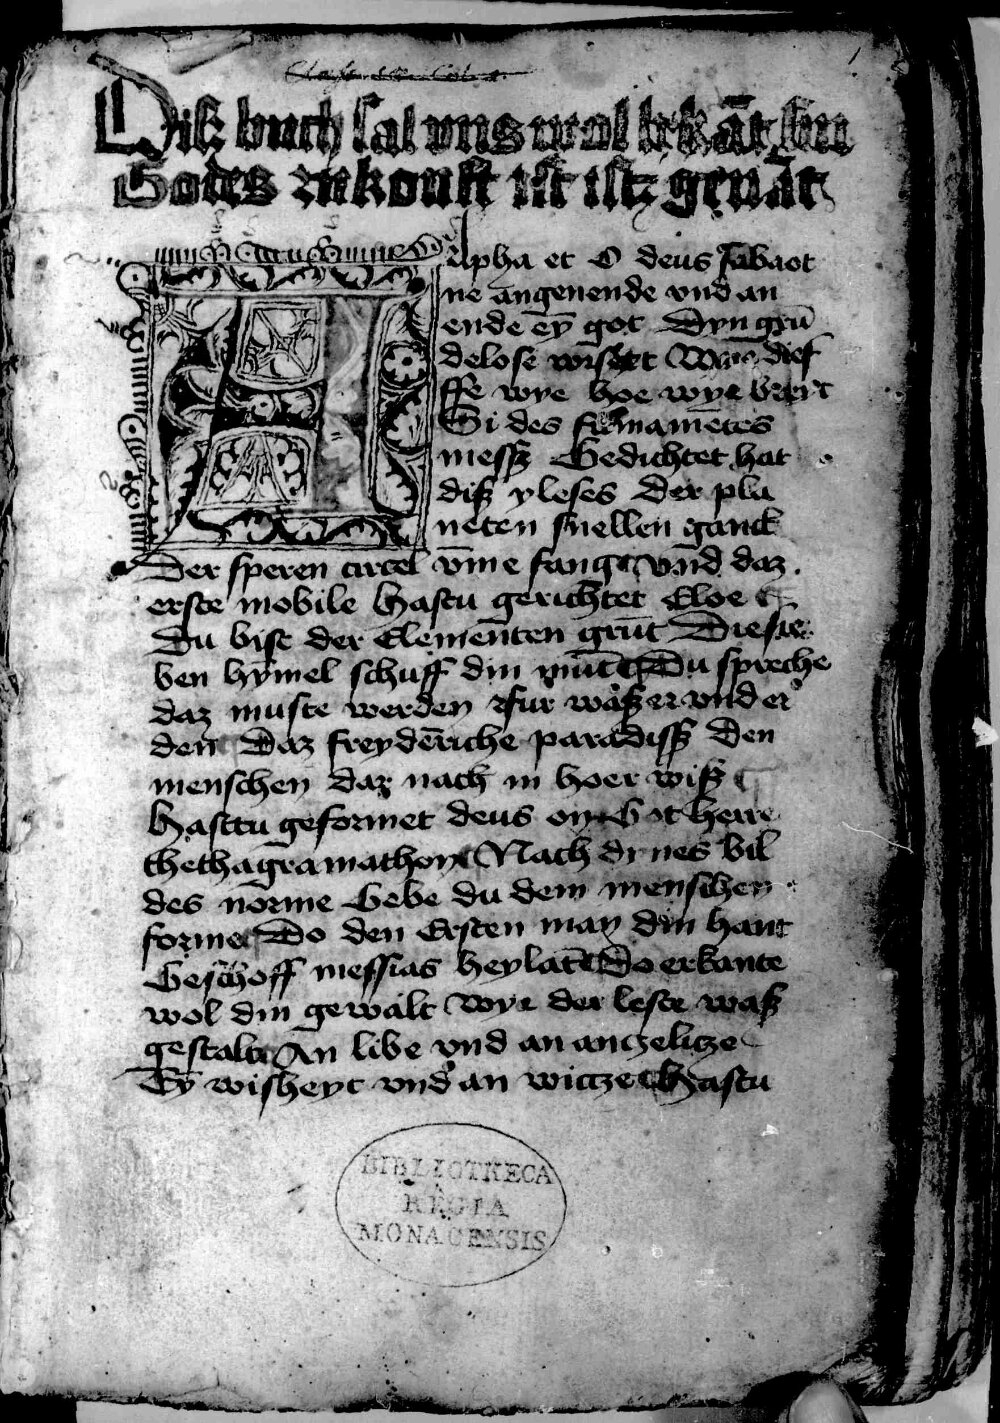 Disz buch sal vns wol bekāt sin
Godes zukonft ist isz genāt
Alpha et O deus sabaot
ne angenende vnd an
ende ey̅ got Dyn gru̅
delose Wie dief
ffe wye hoe wye breit
Si des firmame̅tes
messz Gedichtet hat
disz yleses Der pla
neten snellen ganck
Der speren circel vm̅e fangt vnd daz
erste mobile Hastu gerichtet Eloe
Du bist der Elementen gru̅t Die sie
ben hy̅mel schuff din mu̅t Du spreche
daz muste werden Fur wasz er vnd er
den Daz freyde̅riche paradissz Den
menschen dar nach in hoer wisz
Hasttu geformet deus on Got herre
thethagramathon Nach dines bil
des norme Gebe du dem menschen
forme Do den Ersten man din hant
Geschoff messias heylāt Do erkante
wol din gewalt Wye der leste wasz
gestalt An libe vnd an anczelicze
Ey̅ wisheyt vnd an wicze Hastu
BIBLIOTHECA
REGIA
MONACENSIS